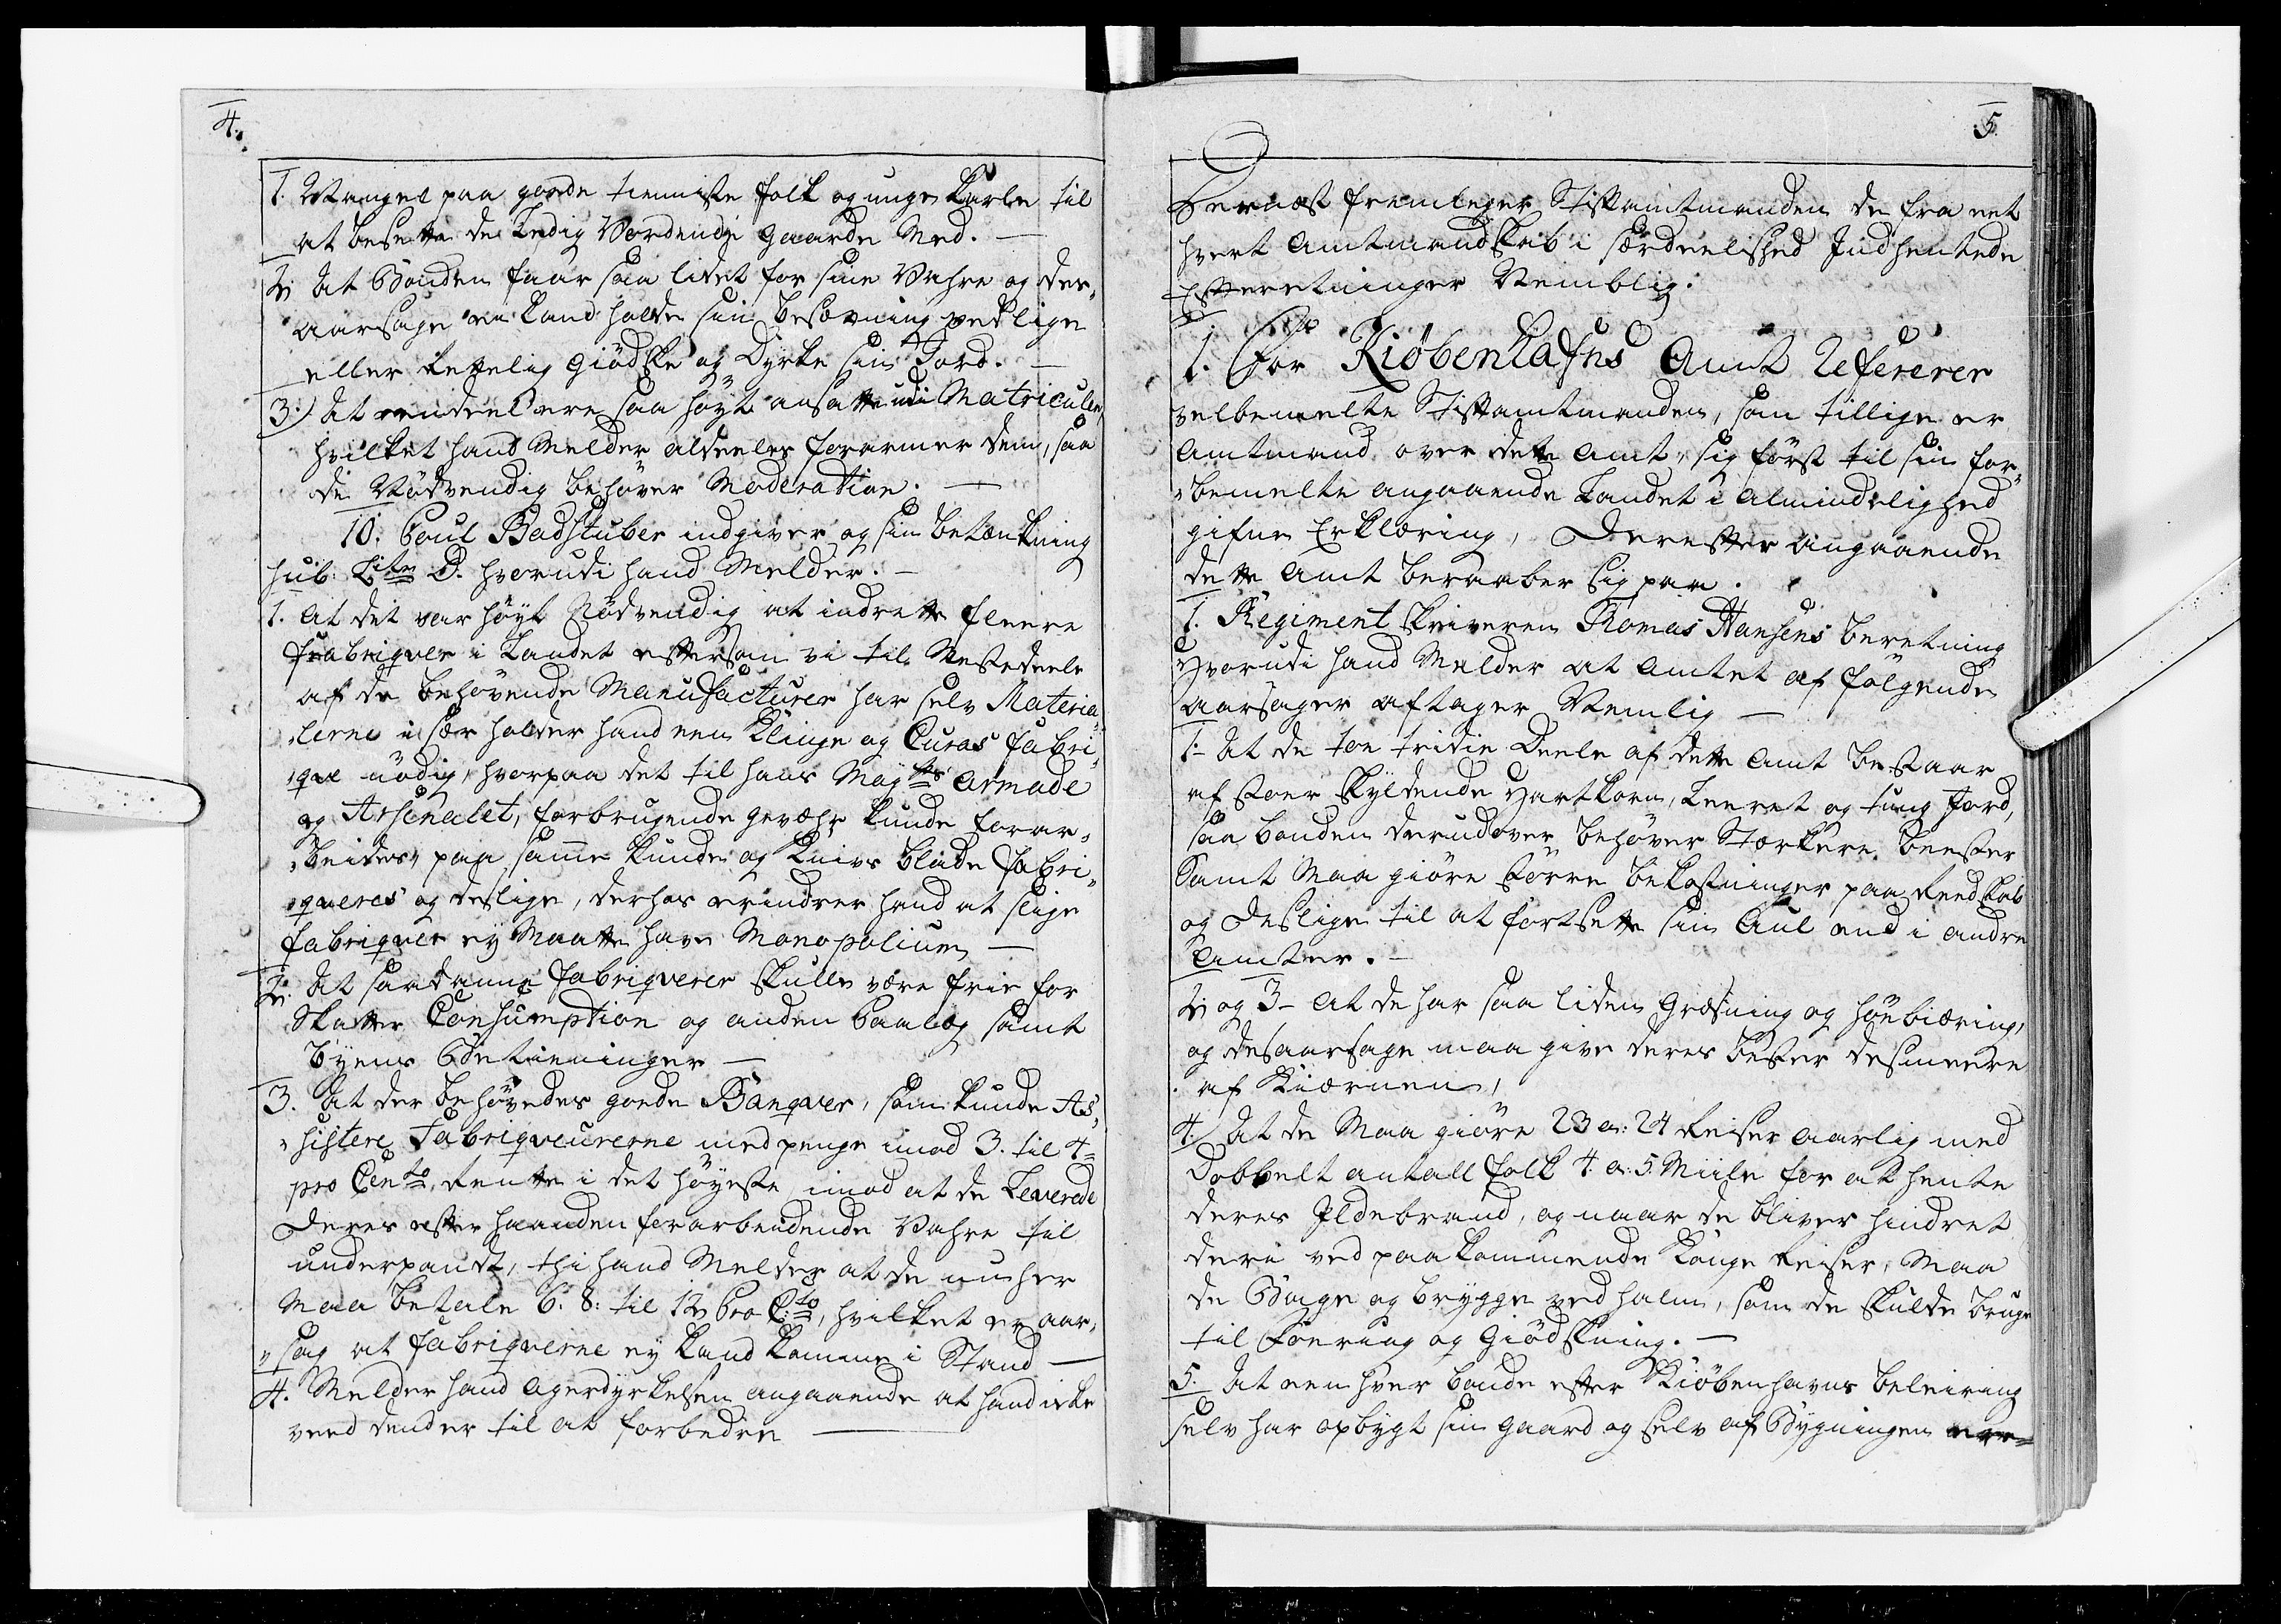 4.
1. Mangel paa goede tienniste folk og unge Karle til
at besette de Ledig Vordende gaarde Med. —
2. At Bonden faar saa lidet for sine Vahre og der„
aarsage en kand holde sin besætning vedlige
eller rettelig Giødske og Dyrke sin Jord. —
3.) At eendeel ere saa höyt ansatte udi Matriculen,
hvilket hand Melder aldeeles forarmer dem, saa
de Nödvendig behöver Moderation. —
10. Poul Badstuber indgiver og sin betænkning
sub: Litr. D. hvorudi hand Melder. —
1. At det var höyt Nödvendig at indrette fleere
fabriqver i Landet eftersom vi til Mestedeele
af de behövende Manufacturer har selv Materia„
„lerne i sær holder hand een Klinge og Curas fabri„
„qve nödig, hvorpaa det til hans May:ts Armade
og Arsenalet, forbrugende gevæhr kunde forar„
„beides, paa samme kunde og Knivs blade fabri„
„qveres og deslige, derhos erindrer hand at slige
fabriqver ey Maatte have Monopolium —
2. At saadanne fabriqverer skulle være frie for
Skatter Consumption og anden Paalæg samt
Byens Bestillninger —
3. At der behövedes goede Banqver, som kunde As„
„sistere Fabriqveurerne med penge imod 3. til 4=
pro Cen:to, Rente i det höyeste imod at de Leverede
Deres efter haanden forarbeidende Vahre til
underpandt, thi hand Melder at de nu her
Maa betale 6. 8: til 12 Pro C:to, hvilket er aar„
„sag at fabriqverne ey kand komme i Stand —
4. Melder hand Agerdyrkelsen angaaende at hand ikke
veed den der til at forbedre —
5.
Dernæst fremleger Stiftamtmanden de fra eet
hvert Amtmandskab i særdeelished Indhentede
Efterretninger Nemblig.
1. For Kiøbenhafns Amt Refererer
velbemelte Stiftamtmanden, som tillige er
Amtmand over dette Amt, sig först til sin for„
„bemelte angaaende Landet i Almindelighed
gifne Erklæring, Derefter angaaende
dette Amt beraaber sig paa.
1. Regiment skriveren Thomas Hansens beretning
Hvorudi hand Melder at Amtet af fölgende
Aarsager aftager Nemlig —
1. At de toe tridie Deele af dette Amt bestaar
af stoer skyldende Hartkorn, Leeret og tung Jord,
saa bonden derudover behöver Stærkere Beester
Samt Maa giöre större bekostninger paa Reedskab
og Deslige til at fortsette sin Aul end i andre
Amter. —
2. og 3 — At de har saa liden Græsning og höebiering,
og desaarsage maa give deres bester desmeere
af Kiærnen,
4. At de Maa giöre 23 a: 24 Reiser aarlig med
Dobbelt antall folk 4. a: 5. Miile for at hente
deres Ildebrand, og naar de bliver hindret
deri ved paakommende Konge Reiser, Maa
de Bage og brygge ved halm, som de skulde bruge
til Foering og Giödskning. —
5. At een hver bonde efter Kiöbenhavns beleiring
selv har opbygt sin gaard og selv af Bygningen